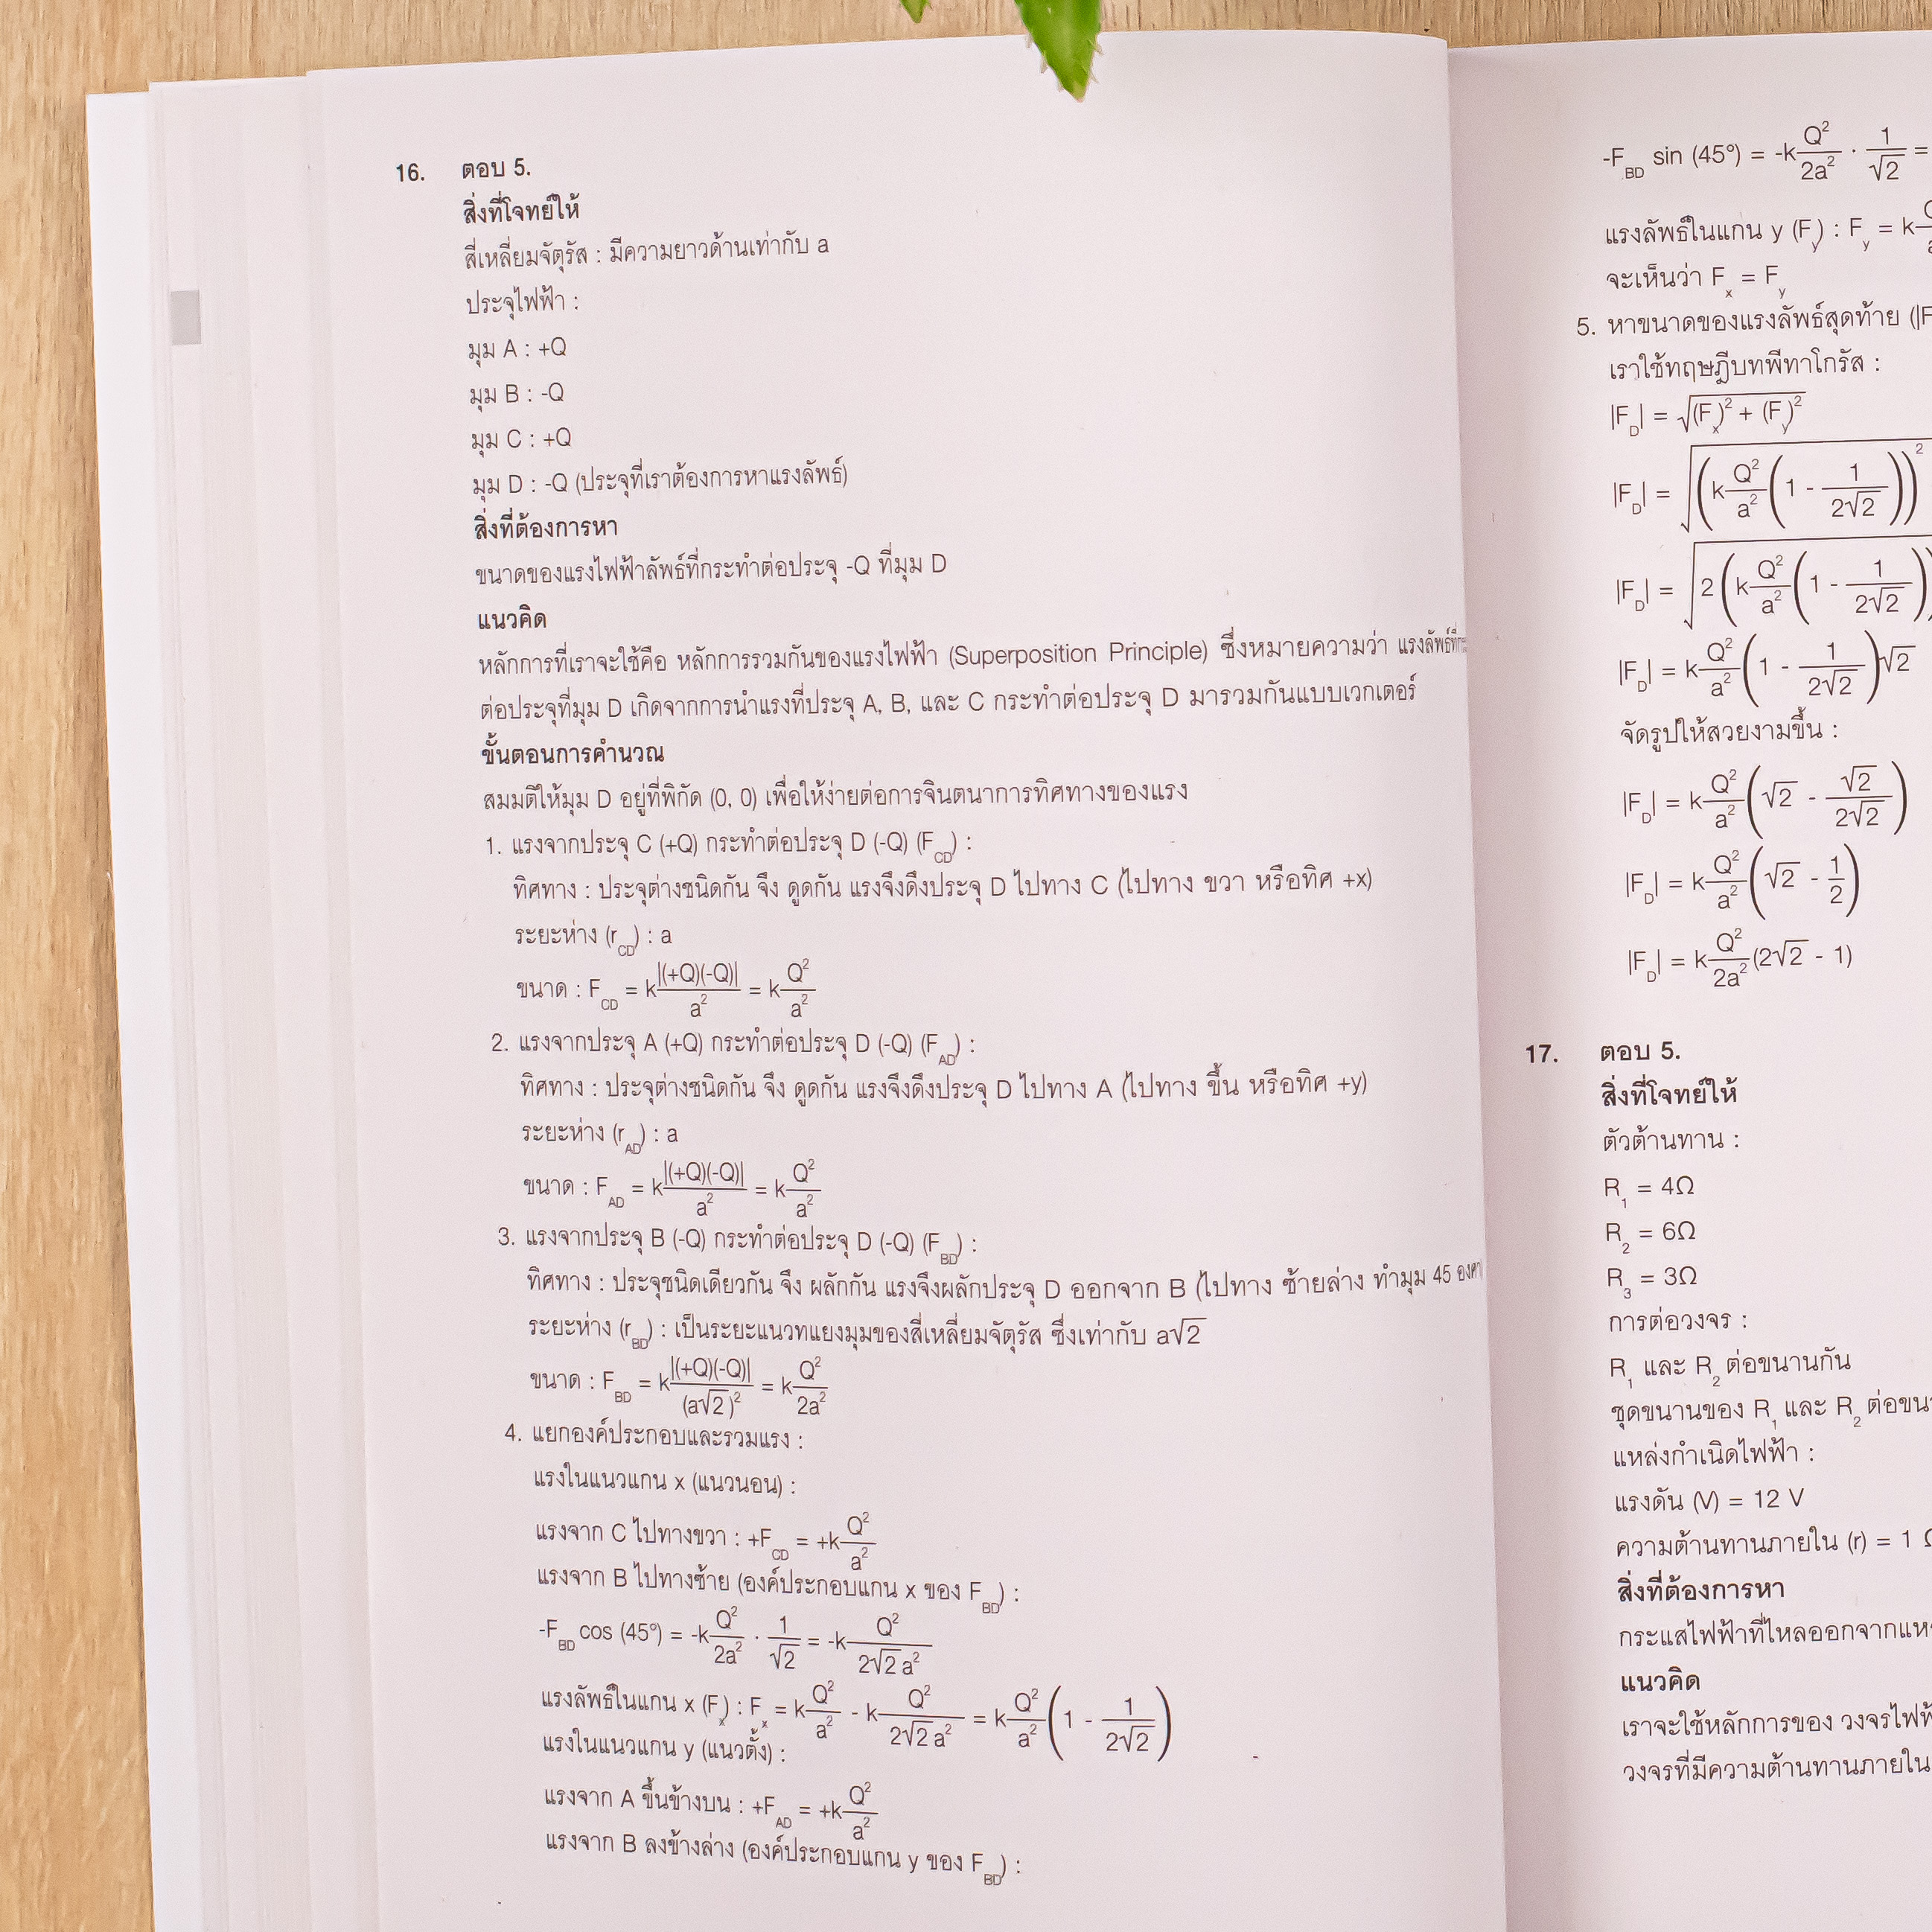 16. ตอบ 5.
สิ่งที่โจทย์ให้
สี่เหลี่ยมจัตุรัส : มีความยาวด้านเท่ากับ a
ประจุไฟฟ้า :
มุม A : +Q
มุม B : -Q
มุม C : +Q
มุม D : -Q (ประจุที่เราต้องการหาแรงลัพธ์)
สิ่งที่ต้องการหา
ขนาดของแรงไฟฟ้าลัพธ์ที่กระทำต่อประจุ -Q ที่มุม D
แนวคิด
หลักการที่เราจะใช้คือ หลักการรวมกันของแรงไฟฟ้า (Superposition Principle) ซึ่งหมายความว่า แรงลัพธ์
ต่อประจุที่มุม D เกิดจากการนำแรงที่ประจุ A, B, และ C กระทำต่อประจุ D มารวมกันแบบเวกเตอร์
ขั้นตอนการคำนวณ
สมมติให้มุม D อยู่ที่พิกัด (0, 0) เพื่อให้ง่ายต่อการจินตนาการทิศทางของแรง
1. แรงจากประจุ C (+Q) กระทำต่อประจุ D (-Q) (F_CD) :
ทิศทาง : ประจุต่างชนิดกัน จึง ดูดกัน แรงจึงดึงประจุ D ไปทาง C (ไปทาง ขวา หรือทิศ +x)
ระยะห่าง (r_CD) : a
ขนาด : F_CD = k|(+Q)(-Q)|/a² = kQ²/a²
2. แรงจากประจุ A (+Q) กระทำต่อประจุ D (-Q) (F_AD) :
ทิศทาง : ประจุต่างชนิดกัน จึง ดูดกัน แรงจึงดึงประจุ D ไปทาง A (ไปทาง ขึ้น หรือทิศ +y)
ระยะห่าง (r_AD) : a
ขนาด : F_AD = k|(+Q)(-Q)|/a² = kQ²/a²
3. แรงจากประจุ B (-Q) กระทำต่อประจุ D (-Q) (F_BD) :
ทิศทาง : ประจุชนิดเดียวกัน จึง ผลักกัน แรงจึงผลักประจุ D ออกจาก B (ไปทาง ซ้ายล่าง ทำมุม 45 องศา
ระยะห่าง (r_BD) : เป็นระยะแนวทแยงมุมของสี่เหลี่ยมจัตุรัส ซึ่งเท่ากับ a√2
ขนาด : F_BD = k|(+Q)(-Q)|/(a√2)² = kQ²/2a²
4. แยกองค์ประกอบและรวมแรง :
แรงในแนวแกน x (แนวนอน) :
แรงจาก C ไปทางขวา : +F_CD = +kQ²/a²
แรงจาก B ไปทางซ้าย (องค์ประกอบแกน x ของ F_BD) :
-F_BD cos (45°) = -kQ²/2a² · 1/√2 = -kQ²/2√2a²
แรงลัพธ์ในแกน x (F_x) : F_x = kQ²/a² - kQ²/2√2a² = kQ²/a²(1 - 1/2√2)
แรงในแนวแกน y (แนวตั้ง) :
แรงจาก A ขึ้นข้างบน : +F_AD = +kQ²/a²
แรงจาก B ลงข้างล่าง (องค์ประกอบแกน y ของ F_BD) :
-F_BD sin (45°) = -kQ²/2a² · 1/√2 =
แรงลัพธ์ในแกน y (F_y) : F_y = k
จะเห็นว่า F_x = F_y
5. หาขนาดของแรงลัพธ์สุดท้าย (|F
เราใช้ทฤษฎีบทพีทาโกรัส :
|F_D| = √((F_x)² + (F_y)²)
|F_D| = √((kQ²/a²(1 - 1/2√2))²
|F_D| = √(2(kQ²/a²(1 - 1/2√2))
|F_D| = kQ²/a²(1 - 1/2√2)√2
จัดรูปให้สวยงามขึ้น :
|F_D| = kQ²/a²(√2 - √2/2√2)
|F_D| = kQ²/a²(√2 - 1/2)
|F_D| = kQ²/2a²(2√2 - 1)
17. ตอบ 5.
สิ่งที่โจทย์ให้
ตัวต้านทาน :
R₁ = 4Ω
R₂ = 6Ω
R₃ = 3Ω
การต่อวงจร :
R₁ และ R₂ ต่อขนานกัน
ชุดขนานของ R₁ และ R₂
แหล่งกำเนิดไฟฟ้า :
แรงดัน (V) = 12 V
ความต้านทานภายใน (r) = 1
สิ่งที่ต้องการหา
กระแสไฟฟ้าที่ไหลออกจาก
แนวคิด
เราจะใช้หลักการของ
วงจรที่มีความต้านทานภายใน